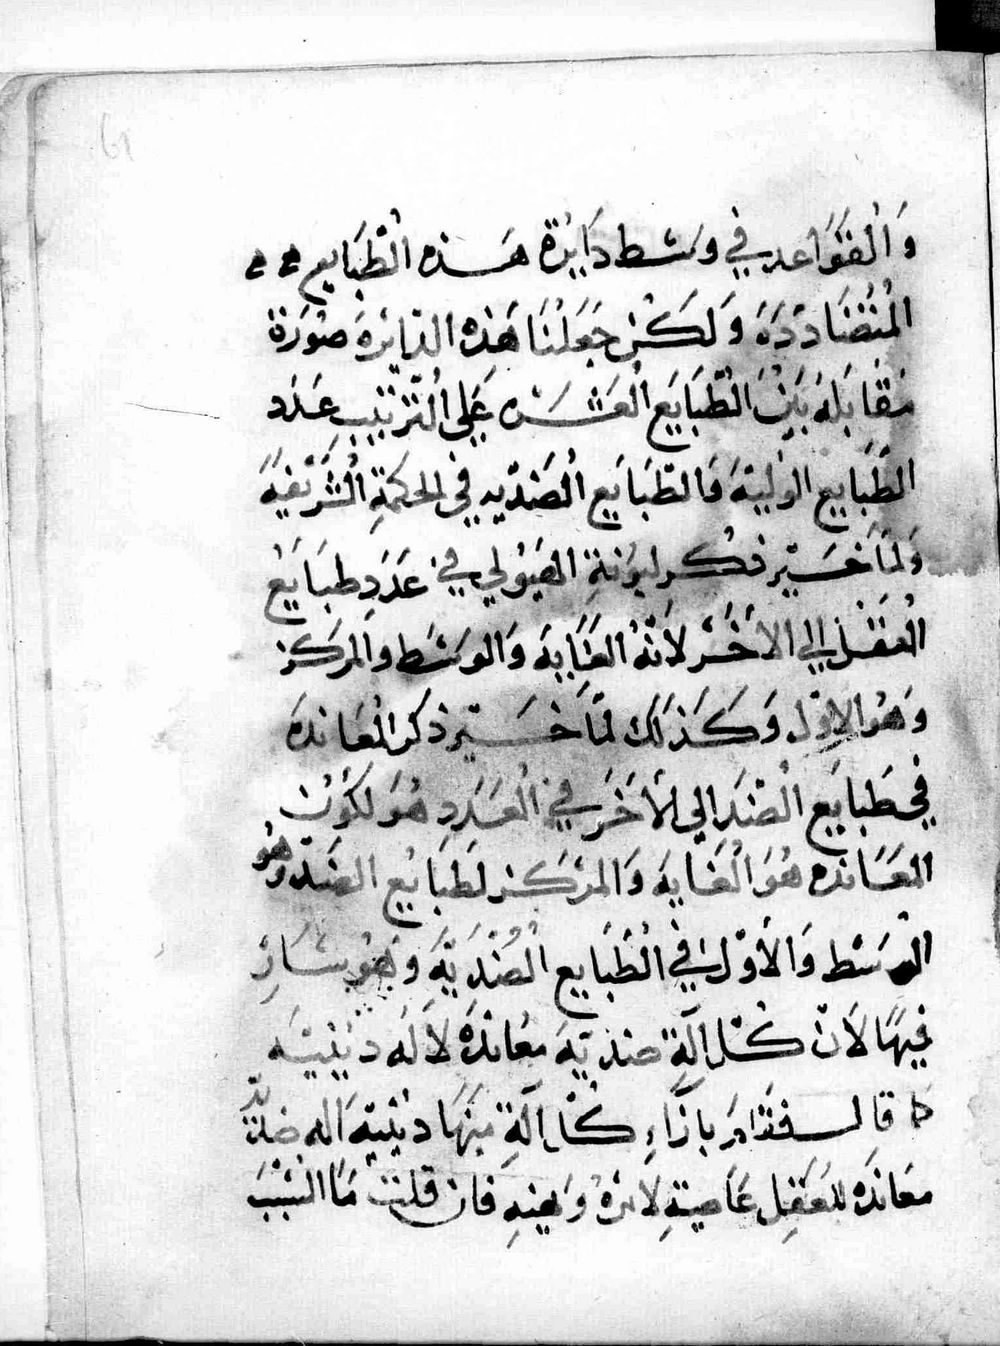 وَالْقَوَاعد في وسَط دَايُرة هَذه الْطَبَايع
الْمتضَاددَة وَلكَن جَعَلنَا هَذه الدّايرَة صُورَة
مقَابَلة بَيْن الطّبَايَع العَشَرَه عَلي الْتّرتيب عَدَد
الطَّبَايع الوليّة وَالطّبَايَع الْضدّيه في الحكمَةِ الْشّرَيْفيهَ
وَلمَا خَسّير ذكر ليوُنةِ الهيُولي في عدَدِ طبَايَعْ
الْعَقل الي الأخَر لأنّهُ الغَايَة وَالوسَط والمركز
وَهُو الاوّل وَكَذلك لمّا خسّير ذكر الْمعَاندَة
في طَبايَع الْضّد الي الأخَر في الْعَدَد هُوَ لكَوْن
المعَاندَه هُوَ الْغَايَة وَالمرْكز لطَبَايُع الضّد وَهُو
الْوسَط وَالأوّل في الْطَبَايع الْضدّيّة وَهُو سَارْ
فيهَا لأن كُل الَة ضديّة معَاندَة لألَه دَينيّه
كما قال فقَامَ بازَاءِ كُل الَةِ منهَا دَينيّة الَه ضدّيّة
معاندَه للعَقل عَاصيةِ لامره وَنهيه فان قلت مَا السّبَبَ
61